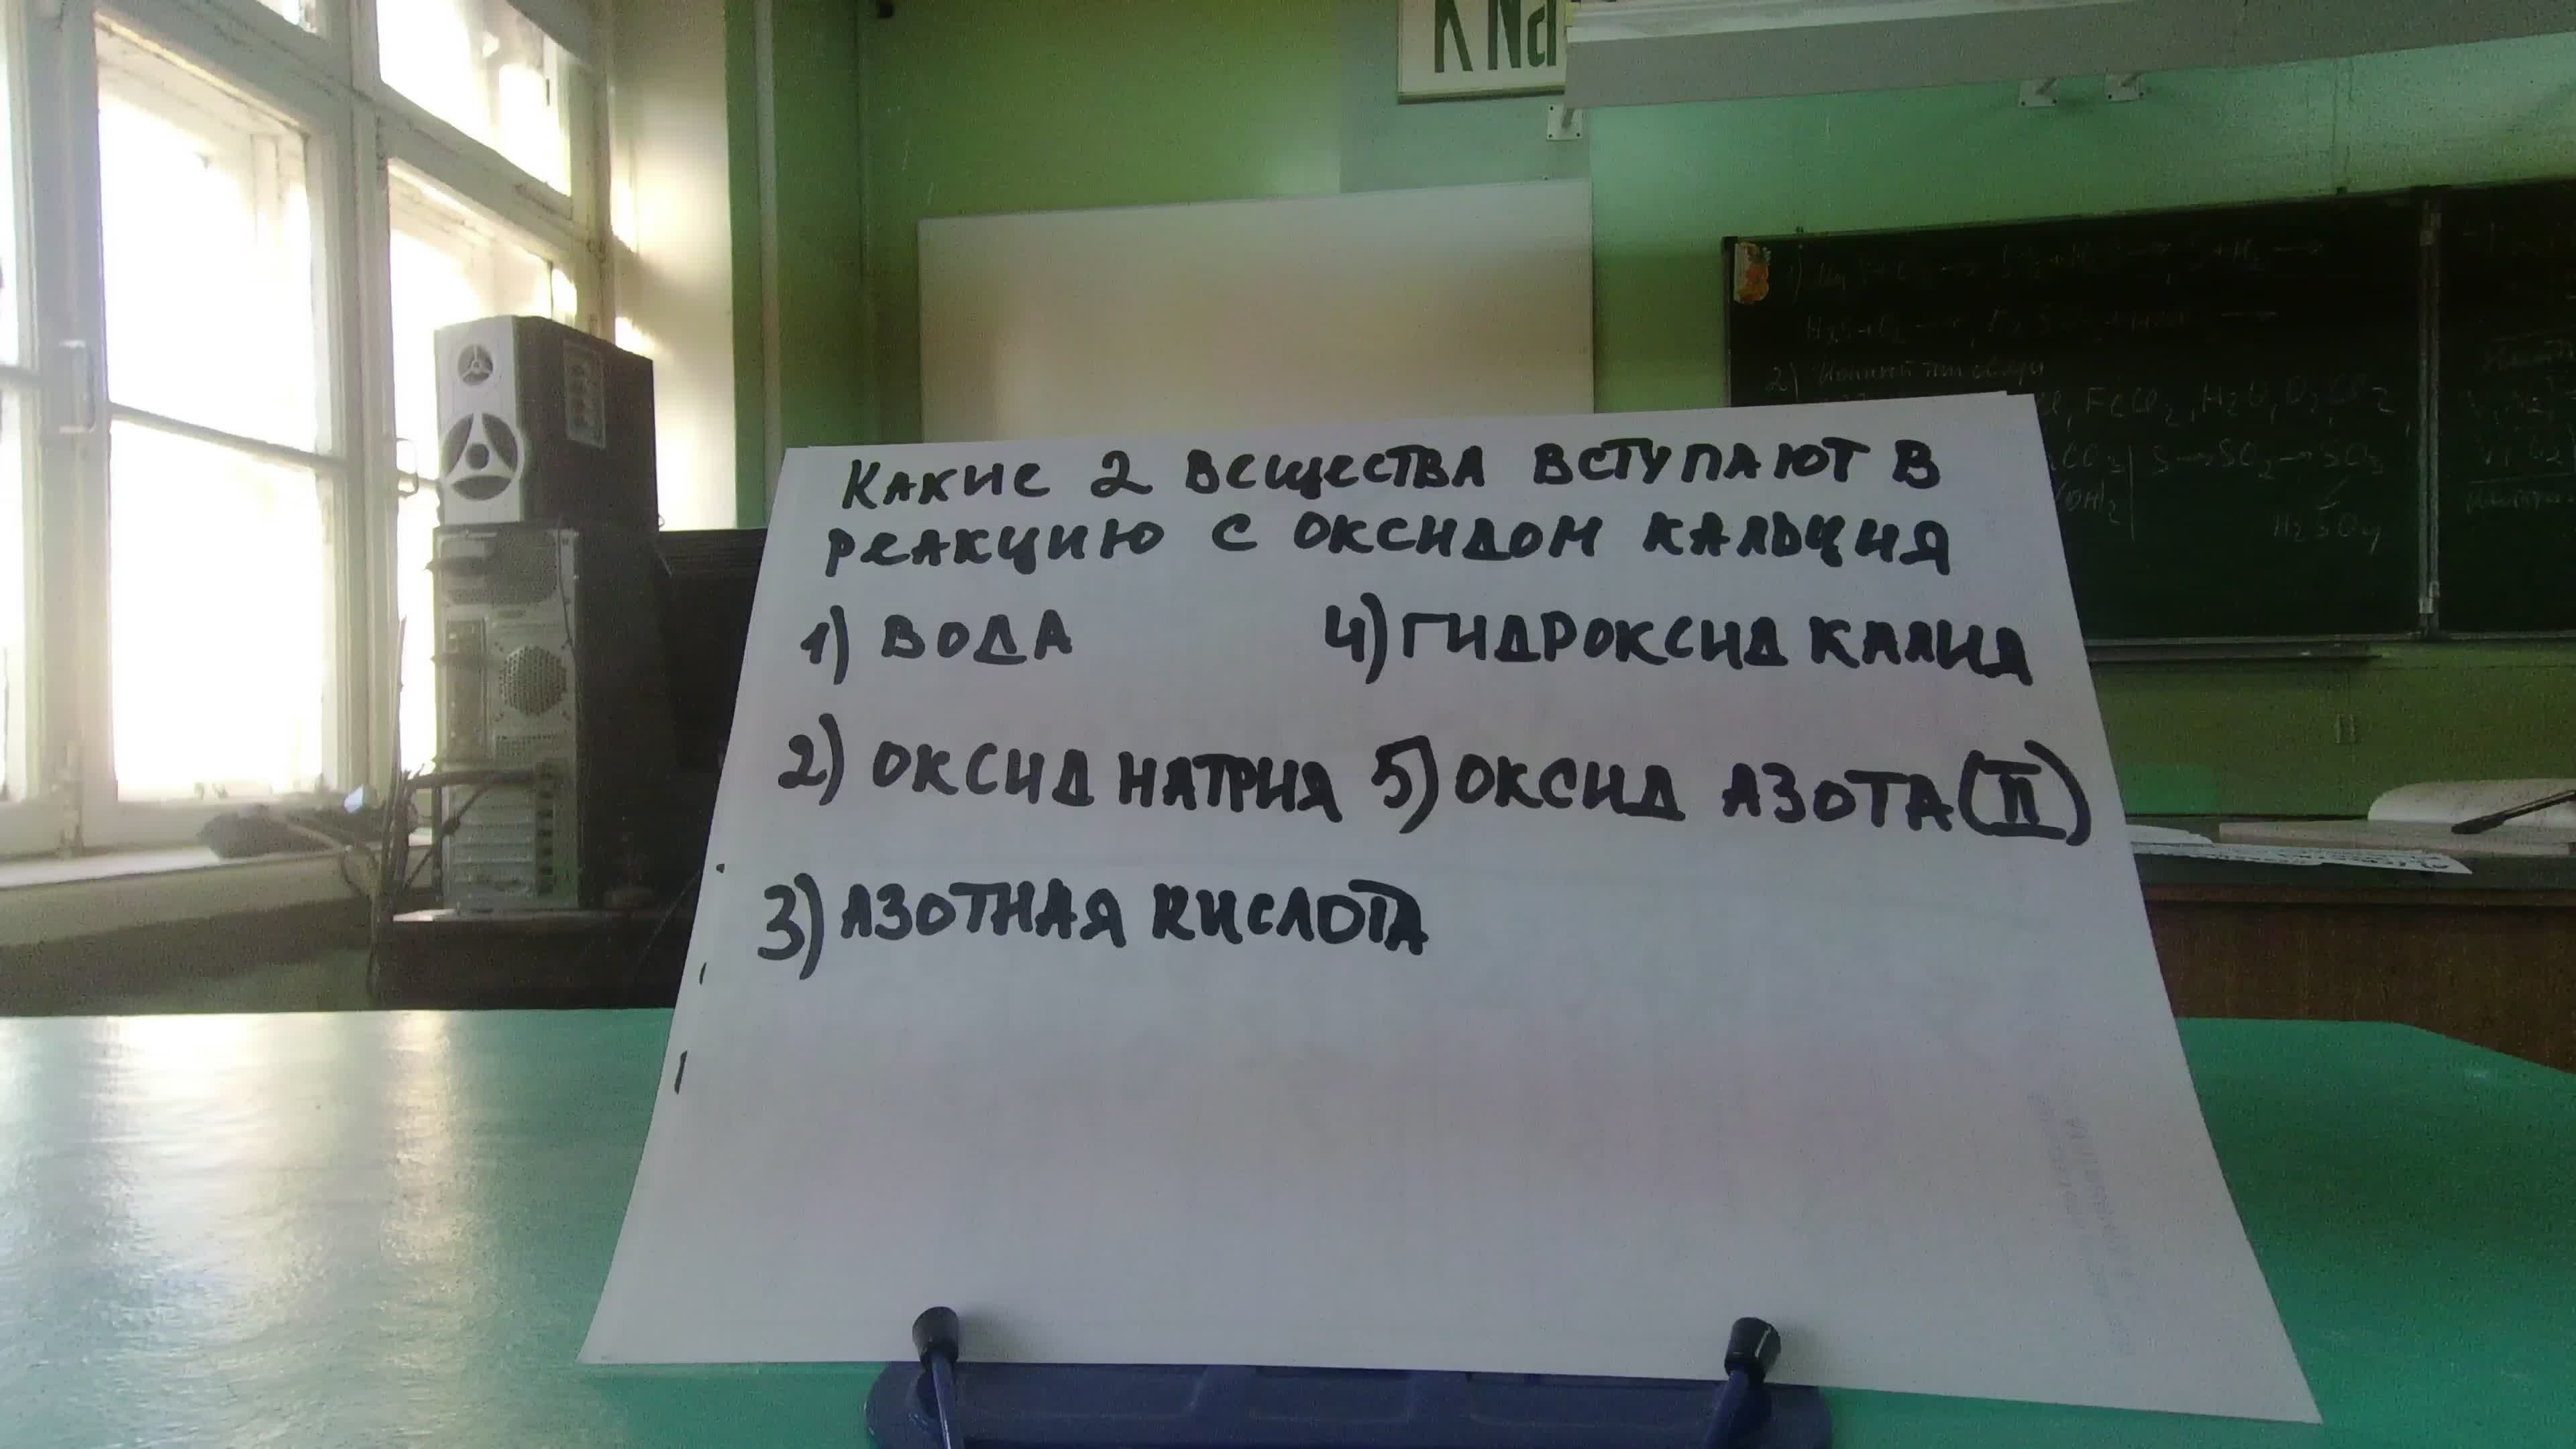 K Na
КАКИЕ 2 ВЕЩЕСТВА ВСТУПАЮТ В
РЕАКЦИЮ С ОКСИДОМ КАЛЬЦИЯ
1) ВОДА 4) ГИДРОКСИД КАЛИЯ
2) ОКСИД НАТРИЯ 5) ОКСИД АЗОТА (II)
3) АЗОТНАЯ КИСЛОТА
2)
FeCl2, H2O, O2,
S → SO2 → SO3
(OH)2
H2SO4